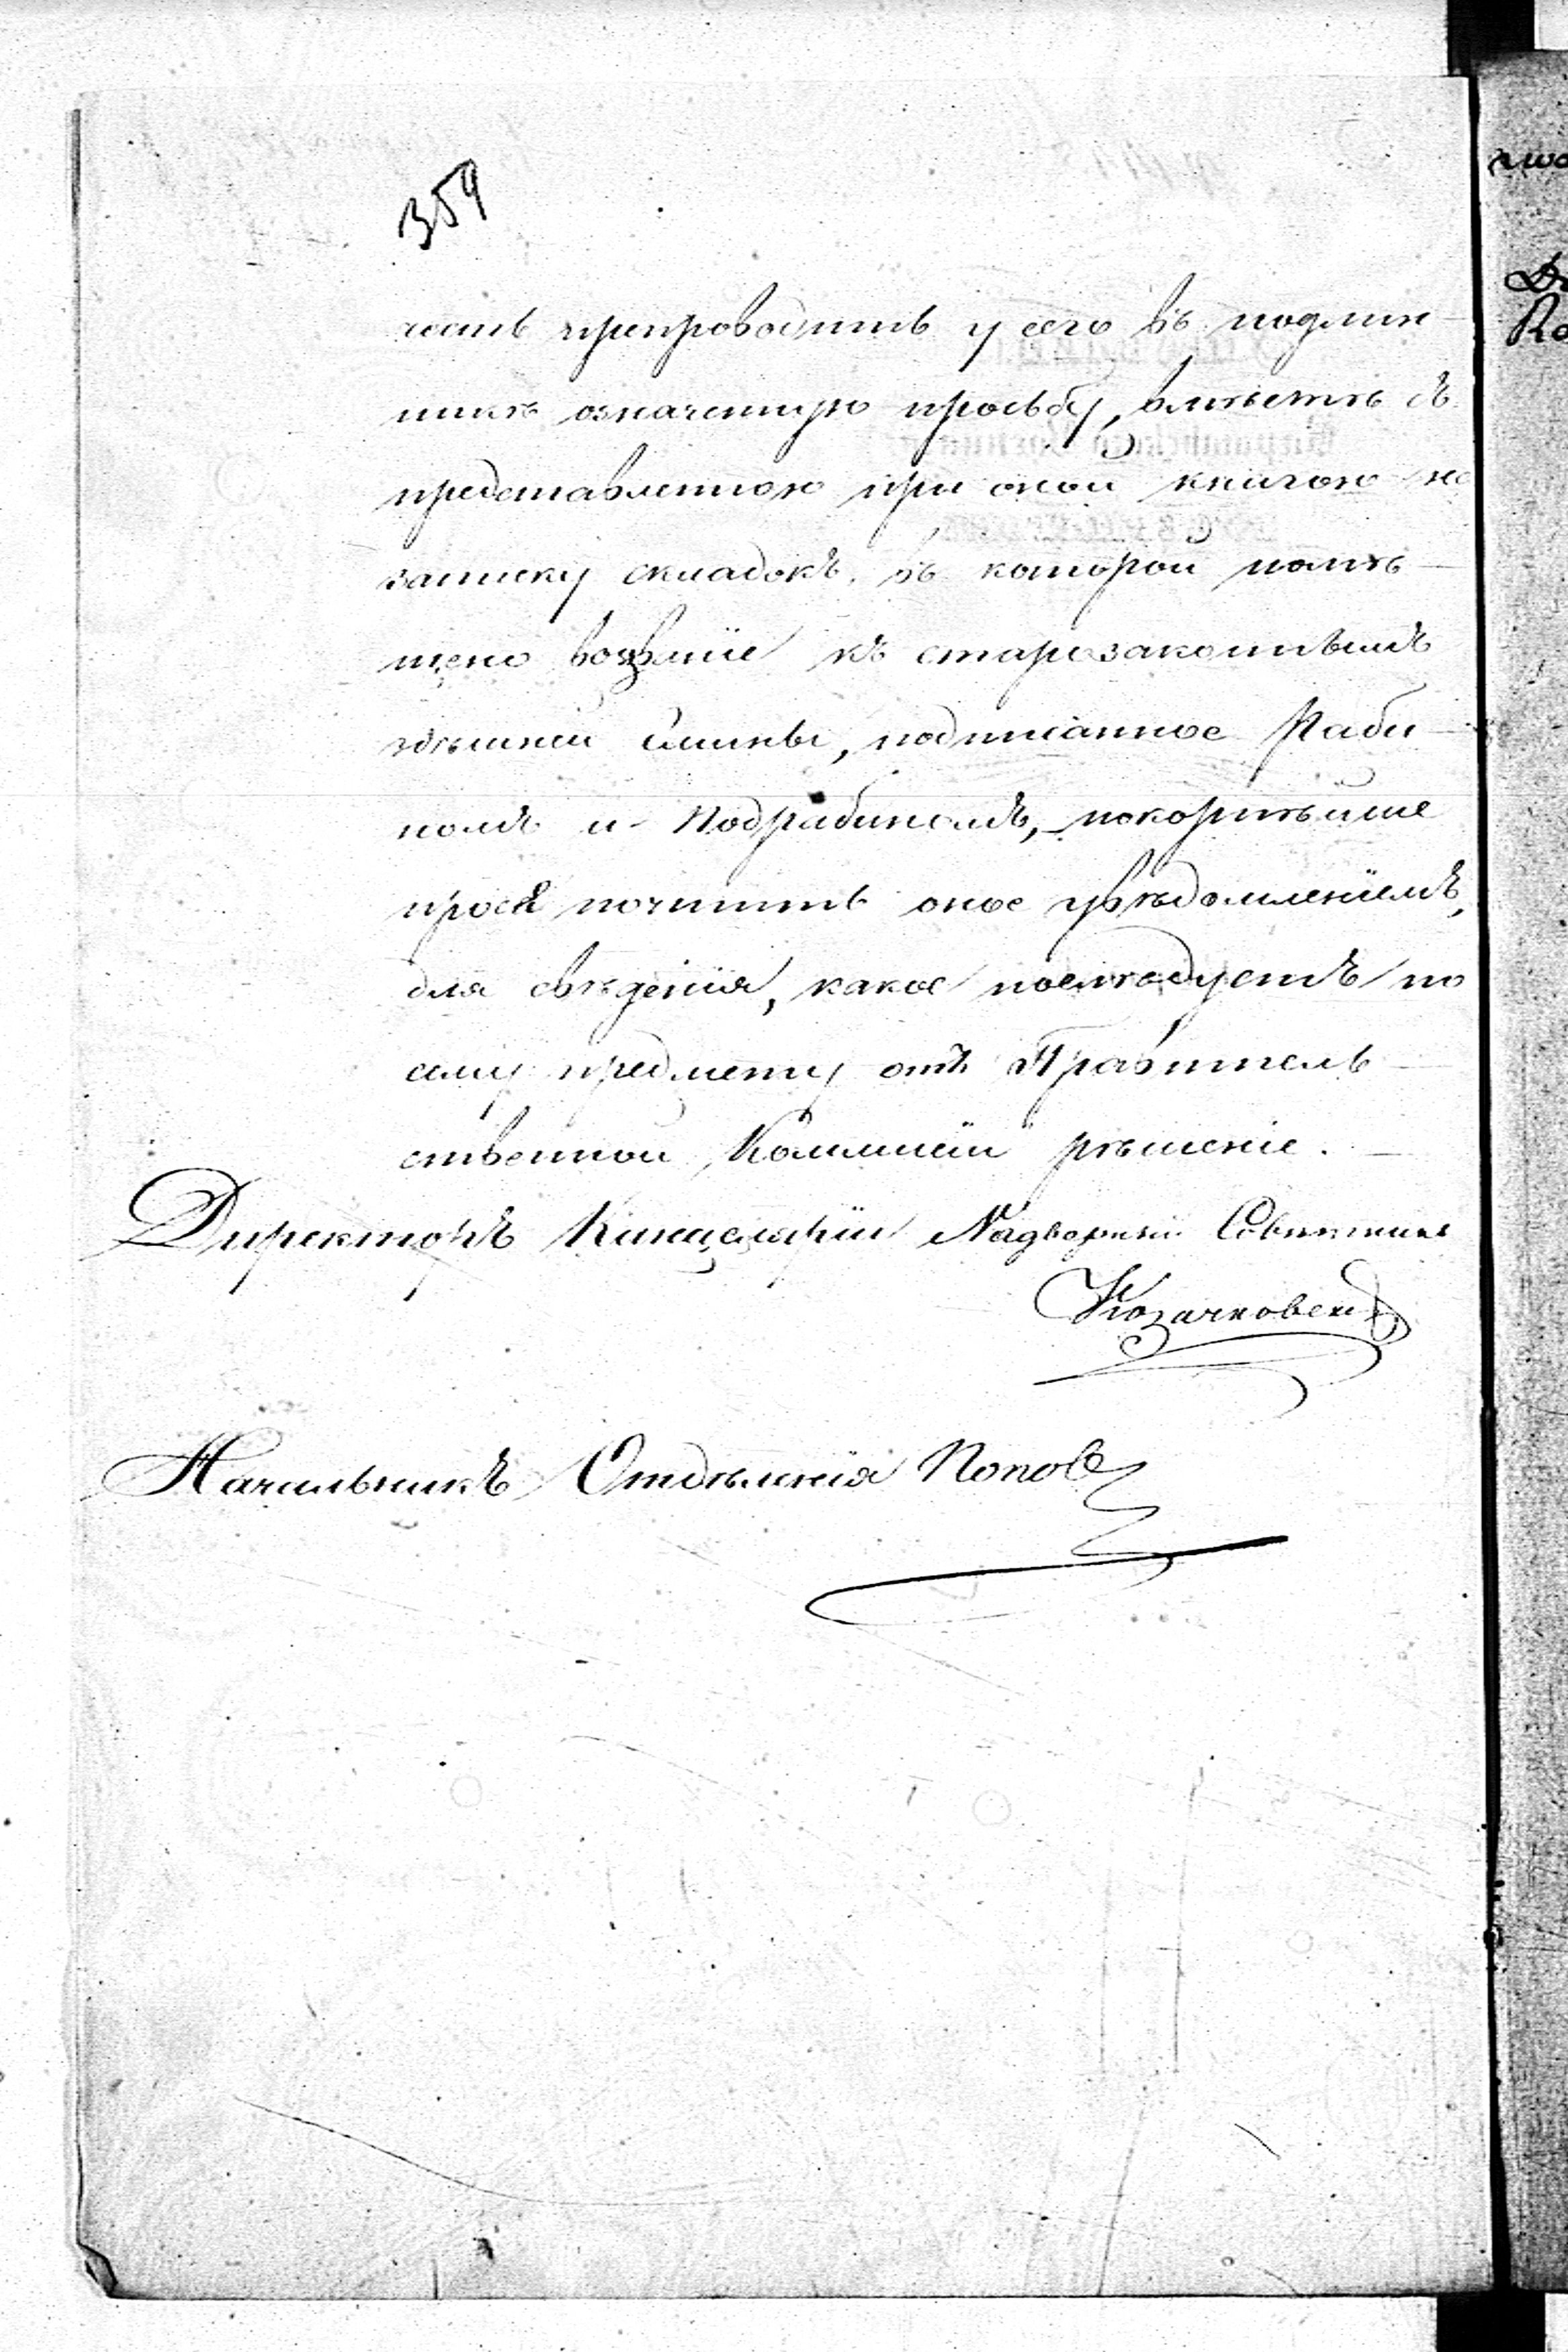 359
честь препроводить у сего въ подлин-
никѣ означенную просьбу, вмѣстѣ съ
представленною при оной книгою на
записку складокъ, въ которой помѣ-
щено воззваніе къ старозаконнымъ
здѣшней Гмины, подписанное Раби-
номъ и Подрабиномъ, покорнѣйше
прося почтить оное увѣдомленіемъ,
для свѣденія, какое послѣдуетъ по
сему предмету отъ Правитель-
ственной Коммисіи рѣшеніе.
Директоръ Канцеляріи Надворный Совѣтникъ
Козачковскій
Начальникъ Отдѣленія Попов